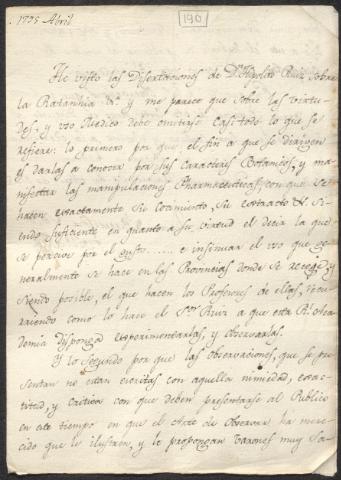 1795 Abril
190
He visto las Disertaciones de Dn. Hipolito Ruiz sobre
la Ratanhia &a. y me parece que sobre las virtu-
des, y uso Medico debe omitirse casi todo lo que se
refiere: lo primero por que el fin a que se dirigen
es darlas a conocer por sus caracteres Botanicos, y ma-
nifestar las manipulaciones Pharmaceuticas, con que se
hacen exactamente su cocimiento, su extracto & si-
endo suficiente en quanto a su virtud el decir la que
se percive por el gusto ..... e insinuar el uso que ge-
neralmente se hace en las Provincias donde se recoge, y
siendo posible, el que hacen los Profesores de ellas,
como lo hace el Sor. Ruiz a que esta Rl. Aca-
demia disponga experimentarlas, y observarlas.
Y lo segundo por que las observaciones, que se pre-
sentan no estan escritas con aquella nimiedad, exac-
titud, y critica con que deben presentarse al Publico
en este tiempo en que el Arte de observar ha mere-
cido que le ilustren, y le propongan varones muy Sa-